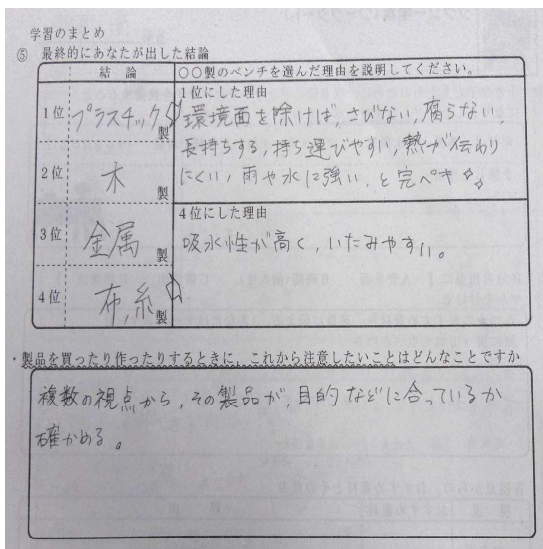 学習のまとめ
⑤ 最終的にあなたが出した結論
結論
○○製のベンチを選んだ理由を説明してください。
1位 プラスチック製
1位にした理由
環境面を除けば、さびない、腐らない、
長持ちする、持ち運びやすい、熱が伝わり
にくい、雨や水に強い、と完ペキ☆☆
2位 木製
3位 金属製
4位にした理由
吸水性が高く、いたみやすい。
4位 布、糸製
・製品を買ったり作ったりするときに、これから注意したいことはどんなことですか
複数の視点から、その製品が、目的などに合っているか
確かめる。